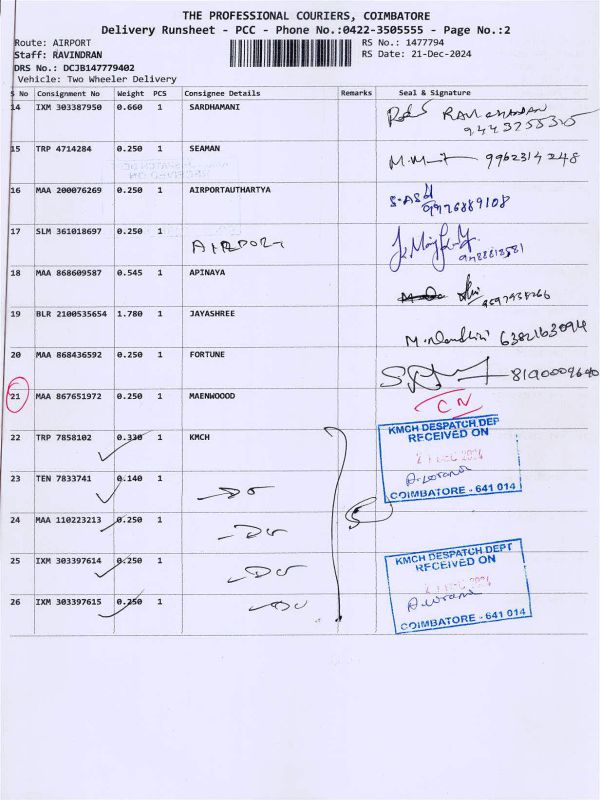 THE PROFESSIONAL COURIERS, COIMBATORE
Delivery Runsheet - PCC - Phone No.:0422-3505555 - Page No.:2
Route: AIRPORT RS No.: 1477794
Staff: RAVINDRAN RS Date: 21-Dec-2024
DRS No.: DCJB147779402
Vehicle: Two Wheeler Delivery
S No Consignment No Weight PCS Consignee Details Remarks Seal & Signature
14 IXM 303387950 0.660 1 SARDHAMANI
15 TRP 4714284 0.250 1 SEAMAN 9962314248
16 MAA 200076269 0.250 1 AIRPORTAUTHARTYA
17 SLM 361018697 0.250 1 AIRPORT
18 MAA 868609587 0.545 1 APINAYA
19 BLR 2100535654 1.780 1 JAYASHREE
20 MAA 868436592 0.250 1 FORTUNE
21 MAA 867651972 0.250 1 MAENWOOOD CN
22 TRP 7858102 0.330 1 KMCH
KMCH DESPATCH DEPT
RECEIVED ON
21 DEC 2024
COIMBATORE - 641 014
23 TEN 7833741 0.140 1 Do
24 MAA 110223213 0.250 1 Do
5
25 IXM 303397614 0.250 1 Do
26 IXM 303397615 0.250 1 Do
KMCH DESPATCH DEPT
RECEIVED ON
21 DEC 2024
COIMBATORE - 641 014